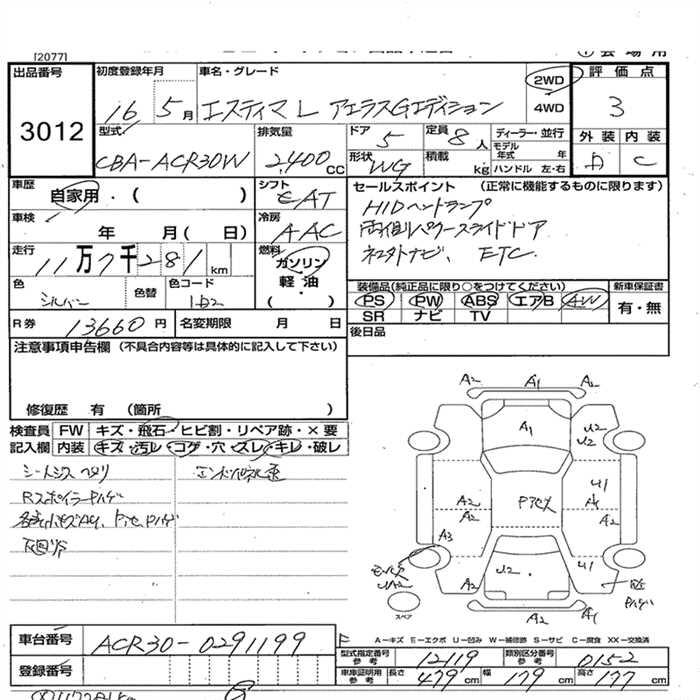 [2077]
出品番号 3012
初度登録年月 16 5月
車名・グレード エスティマ L アエラスGエディション
2WD
4WD
評価点 3
外装 D 内装 C
型式 CBA-ACR30W
排気量 2,400 CC
ドア 5
定員 8人
形状 WG
積載 kg
ディーラー・並行
モデル年式 年
ハンドル 左・右
車歴 自家用・( )
シフト CAT
セールスポイント (正常に機能するものに限ります)
HIDヘッドランプ
両側パワースライドドア
ETC.
車検 年 月( 日)
冷房 AAC
走行 11万7千281 km
燃料 ガソリン
軽油
( )
色 シルバー
色替
色コード 1D2
装備品(純正品に限り○をつけてください)
PS PW ABS エアB AW
SR ナビ TV
新車保証書
有・無
R券 13660円
名変期限 月 日
後日品
注意事項申告欄 (不具合内容等は具体的に記入して下さい)
修復歴 有 (箇所 )
検査員 FW キズ・飛石・ヒビ割・リペア跡・×要
記入欄 内装 キズ・汚レ・コゲ・穴・スレ・キレ・破レ
A2 A1 A2
A1 U2 U2
U1
A2 A2
A3
U2 U1
A2 A2 A1
スペア
A-キズ E-エクボ U-凹み W-補修跡 S-サビ C-腐食 XX-交換済
車台番号 ACR30-0291199
型式指定番号 参考 12119
類別区分番号 参考 0152
登録番号
車庫証明用 参考 長さ 479cm 幅 179cm 高さ 177cm